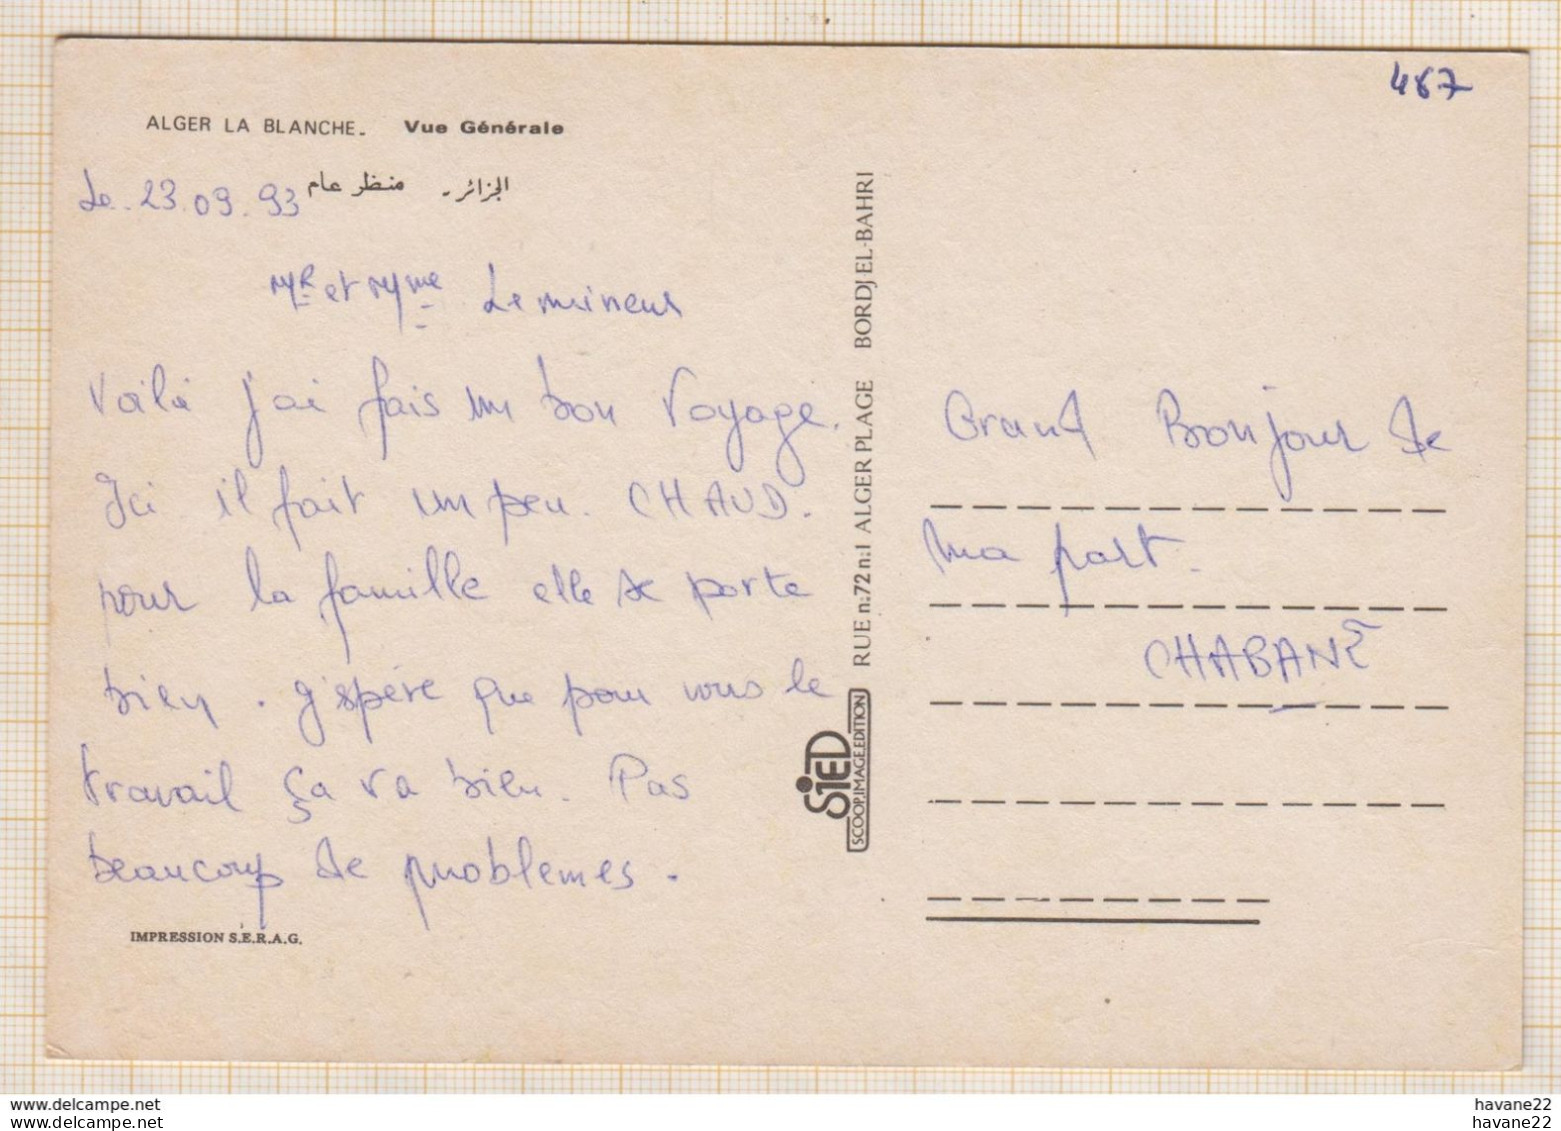 467
ALGER LA BLANCHE. Vue Générale
الجزائر. منظر عام
Le. 23.09.93
MR et Mme Lemineur
Voilà j'ai fais un bon voyage.
Ici il fait un peu. CHAUD.
pour la famille elle se porte
bien. J'spére que pour vous le
travail ça va bien. Pas
beaucoup de problemes.
IMPRESSION S.E.R.A.G.
RUE n:72 n:1 ALGER PLAGE BORDJ-EL-BAHRI
SIED
SCOOP.IMAGE.EDITION
Grand Bonjour de
ma part.
CHABANE
www.delcampe.net
havane22
www.delcampe.net
havane22